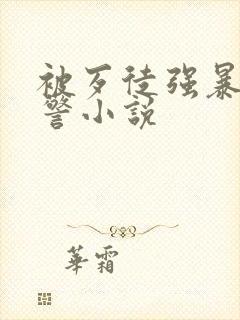 被歹徒强暴
警小说
華霜